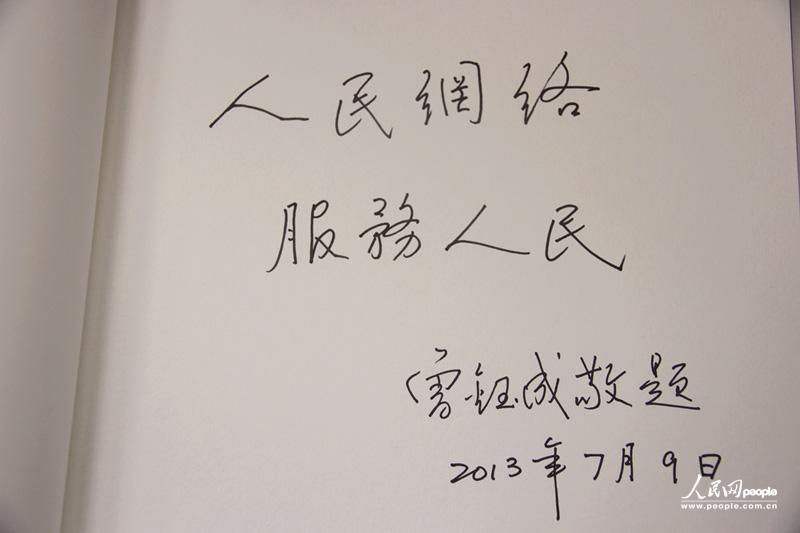 人民網絡
服務人民
曾鈺成敬題
2013年7月9日
人民网people
www.people.com.cn